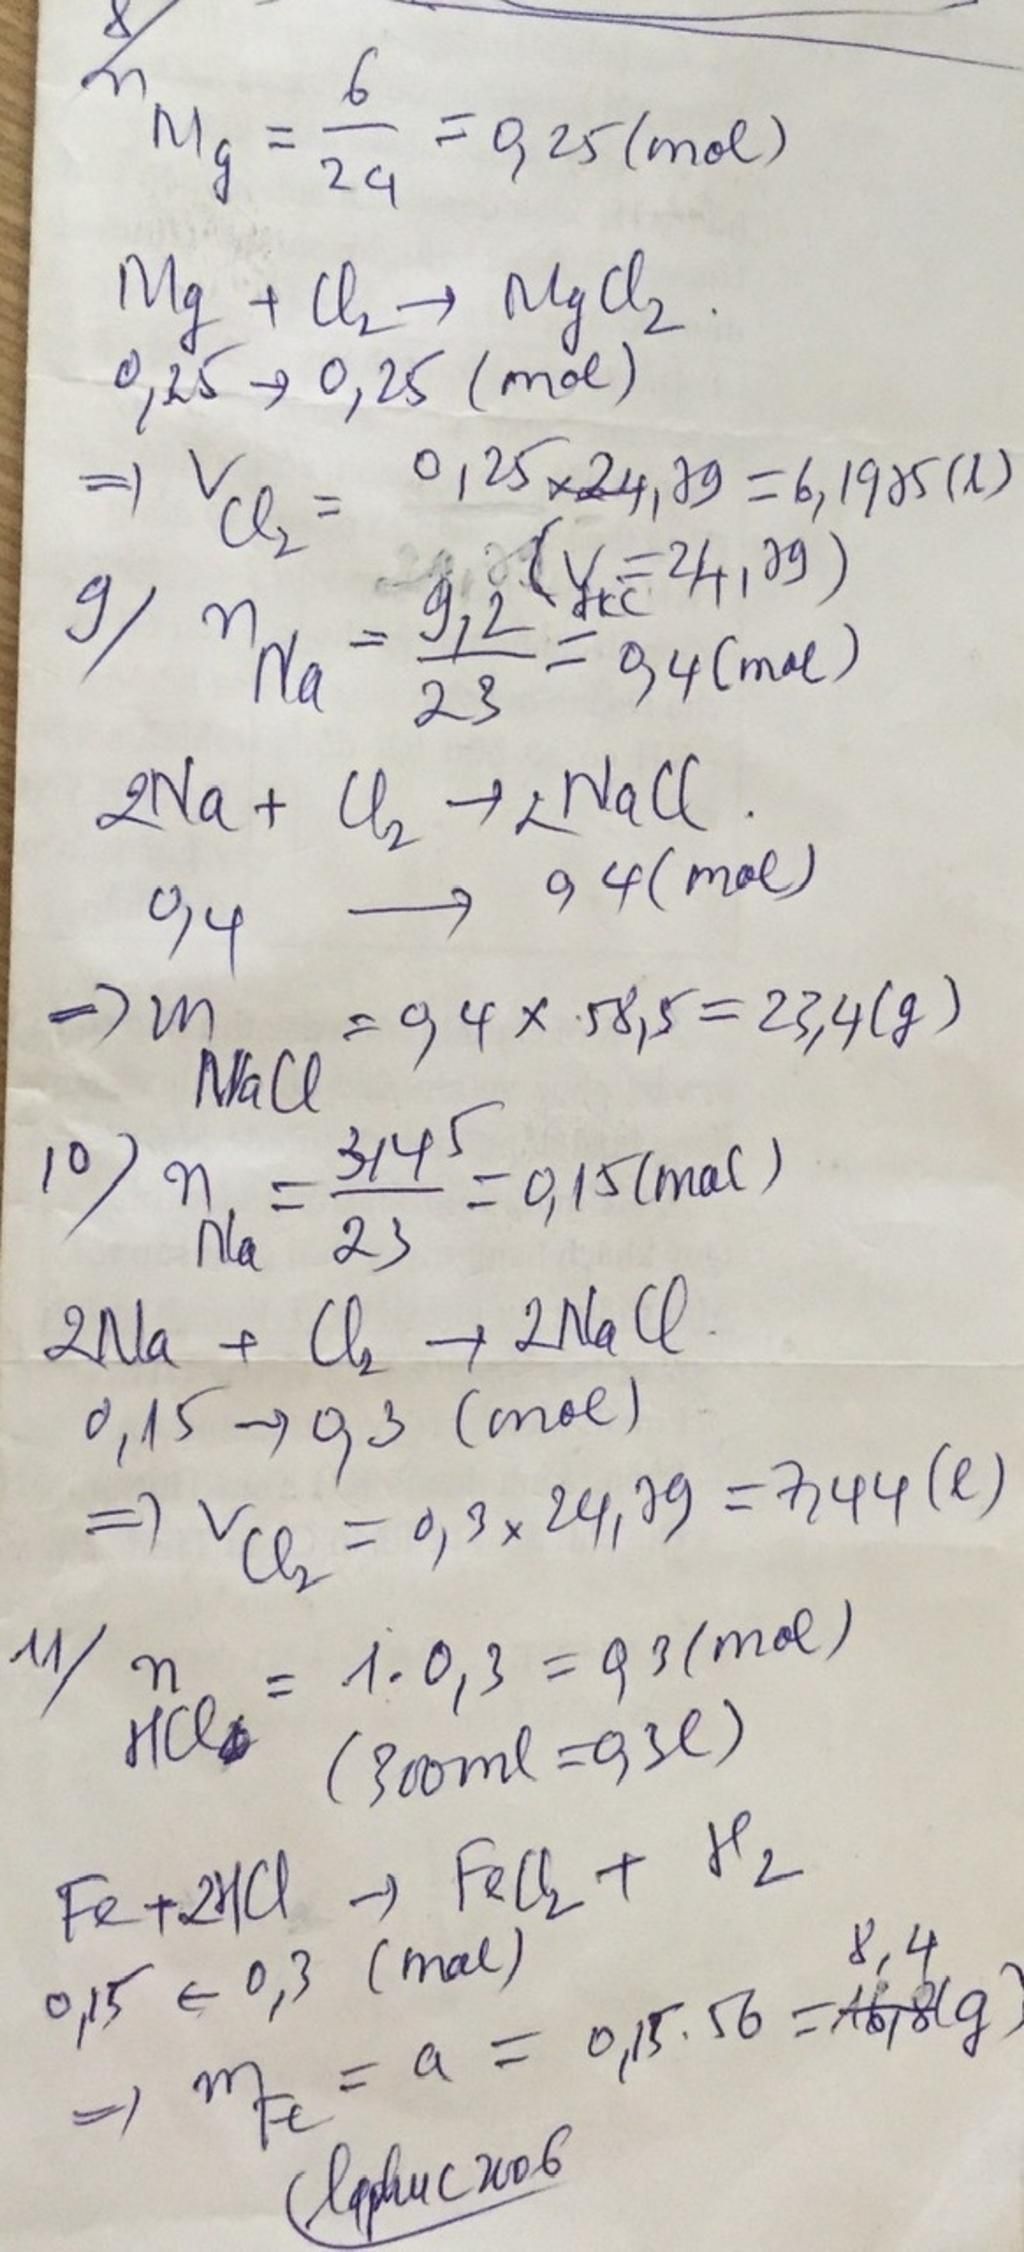 8/
n Mg = 6/24 = 0,25 (mol)
Mg + Cl2 → MgCl2.
0,25 → 0,25 (mol)
=> V Cl2 = 0,25 × 24,79 = 6,1975 (l)
(V đkc = 24,79)
9/ n Na = 9,2/23 = 0,4 (mol)
2Na + Cl2 → 2NaCl.
0,4 → 0,4 (mol)
=> m NaCl = 0,4 × 58,5 = 23,4 (g)
10) n Na = 3,45/23 = 0,15 (mol)
2Na + Cl2 → 2NaCl.
0,15 → 0,3 (mol)
=> V Cl2 = 0,3 × 24,79 = 7,44 (l)
11/ n HCl = 1. 0,3 = 0,3 (mol)
(300ml = 0,3l)
Fe + 2HCl → FeCl2 + H2
0,15 ← 0,3 (mol)
8,4
=> m Fe = a = 0,15. 56 = 16,8 (g)